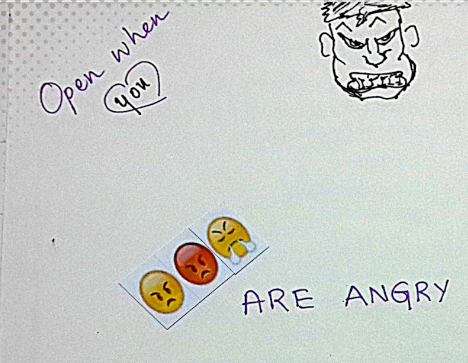 Open when
you
ARE ANGRY